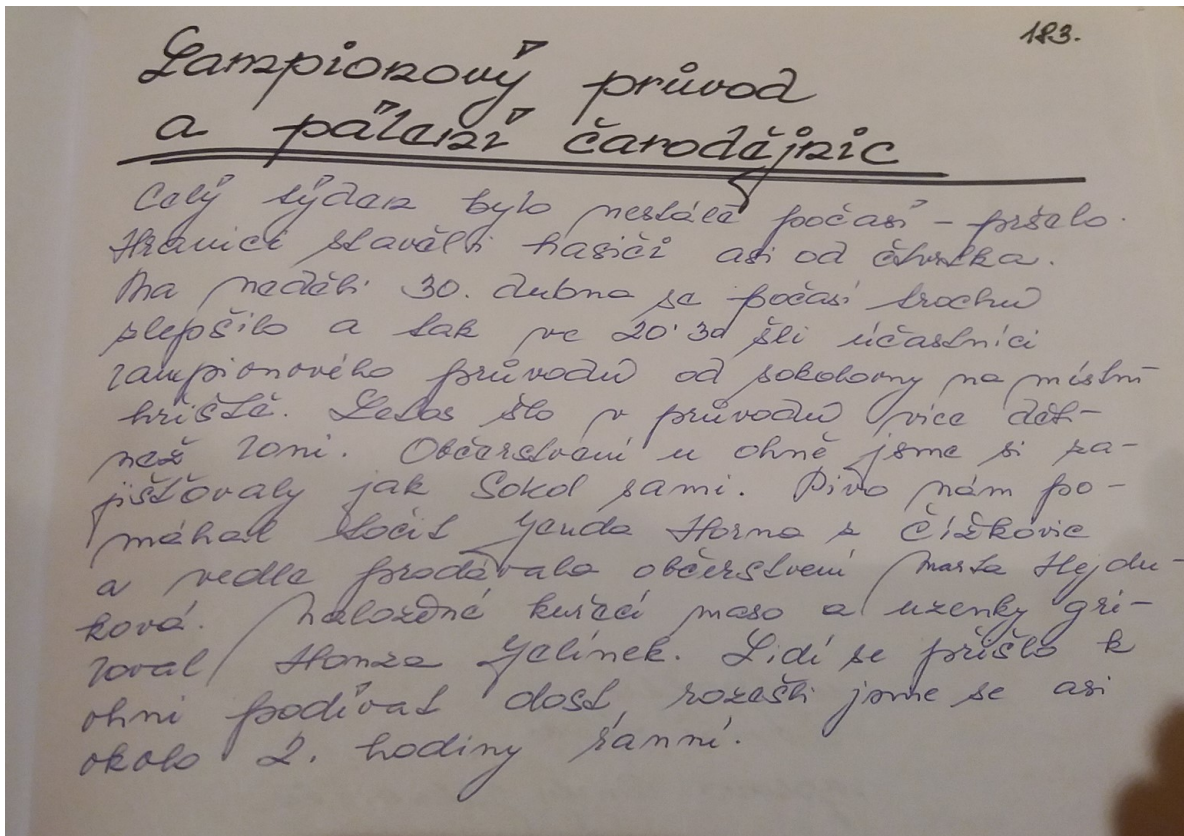 183.
Lampionový průvod
a pálení čarodějnic
Celý týden bylo nestálé počasí - pršelo.
Hranici stavěli hasiči asi od čtvrtka.
Na neděli 30. dubna se počasí trochu
zlepšilo a tak ve 20·30 šli účastníci
lampionového průvodu od sokolovny na místní
hřiště. Letos šlo v průvodu více dětí
než loni. Občerstvení u ohně jsme si za-
jišťovaly jak Sokol sami. Pivo nám po-
máhal točit Jenda Horna z Čížkovic
a vedle prodávala občerstvení Marta Hejdu-
ková. Naložené kuřecí maso a uzenky gri-
loval Honza Jelínek. Lidí se přišlo k
ohni podívat dost, rozešli jsme se asi
okolo 2. hodiny ranní.